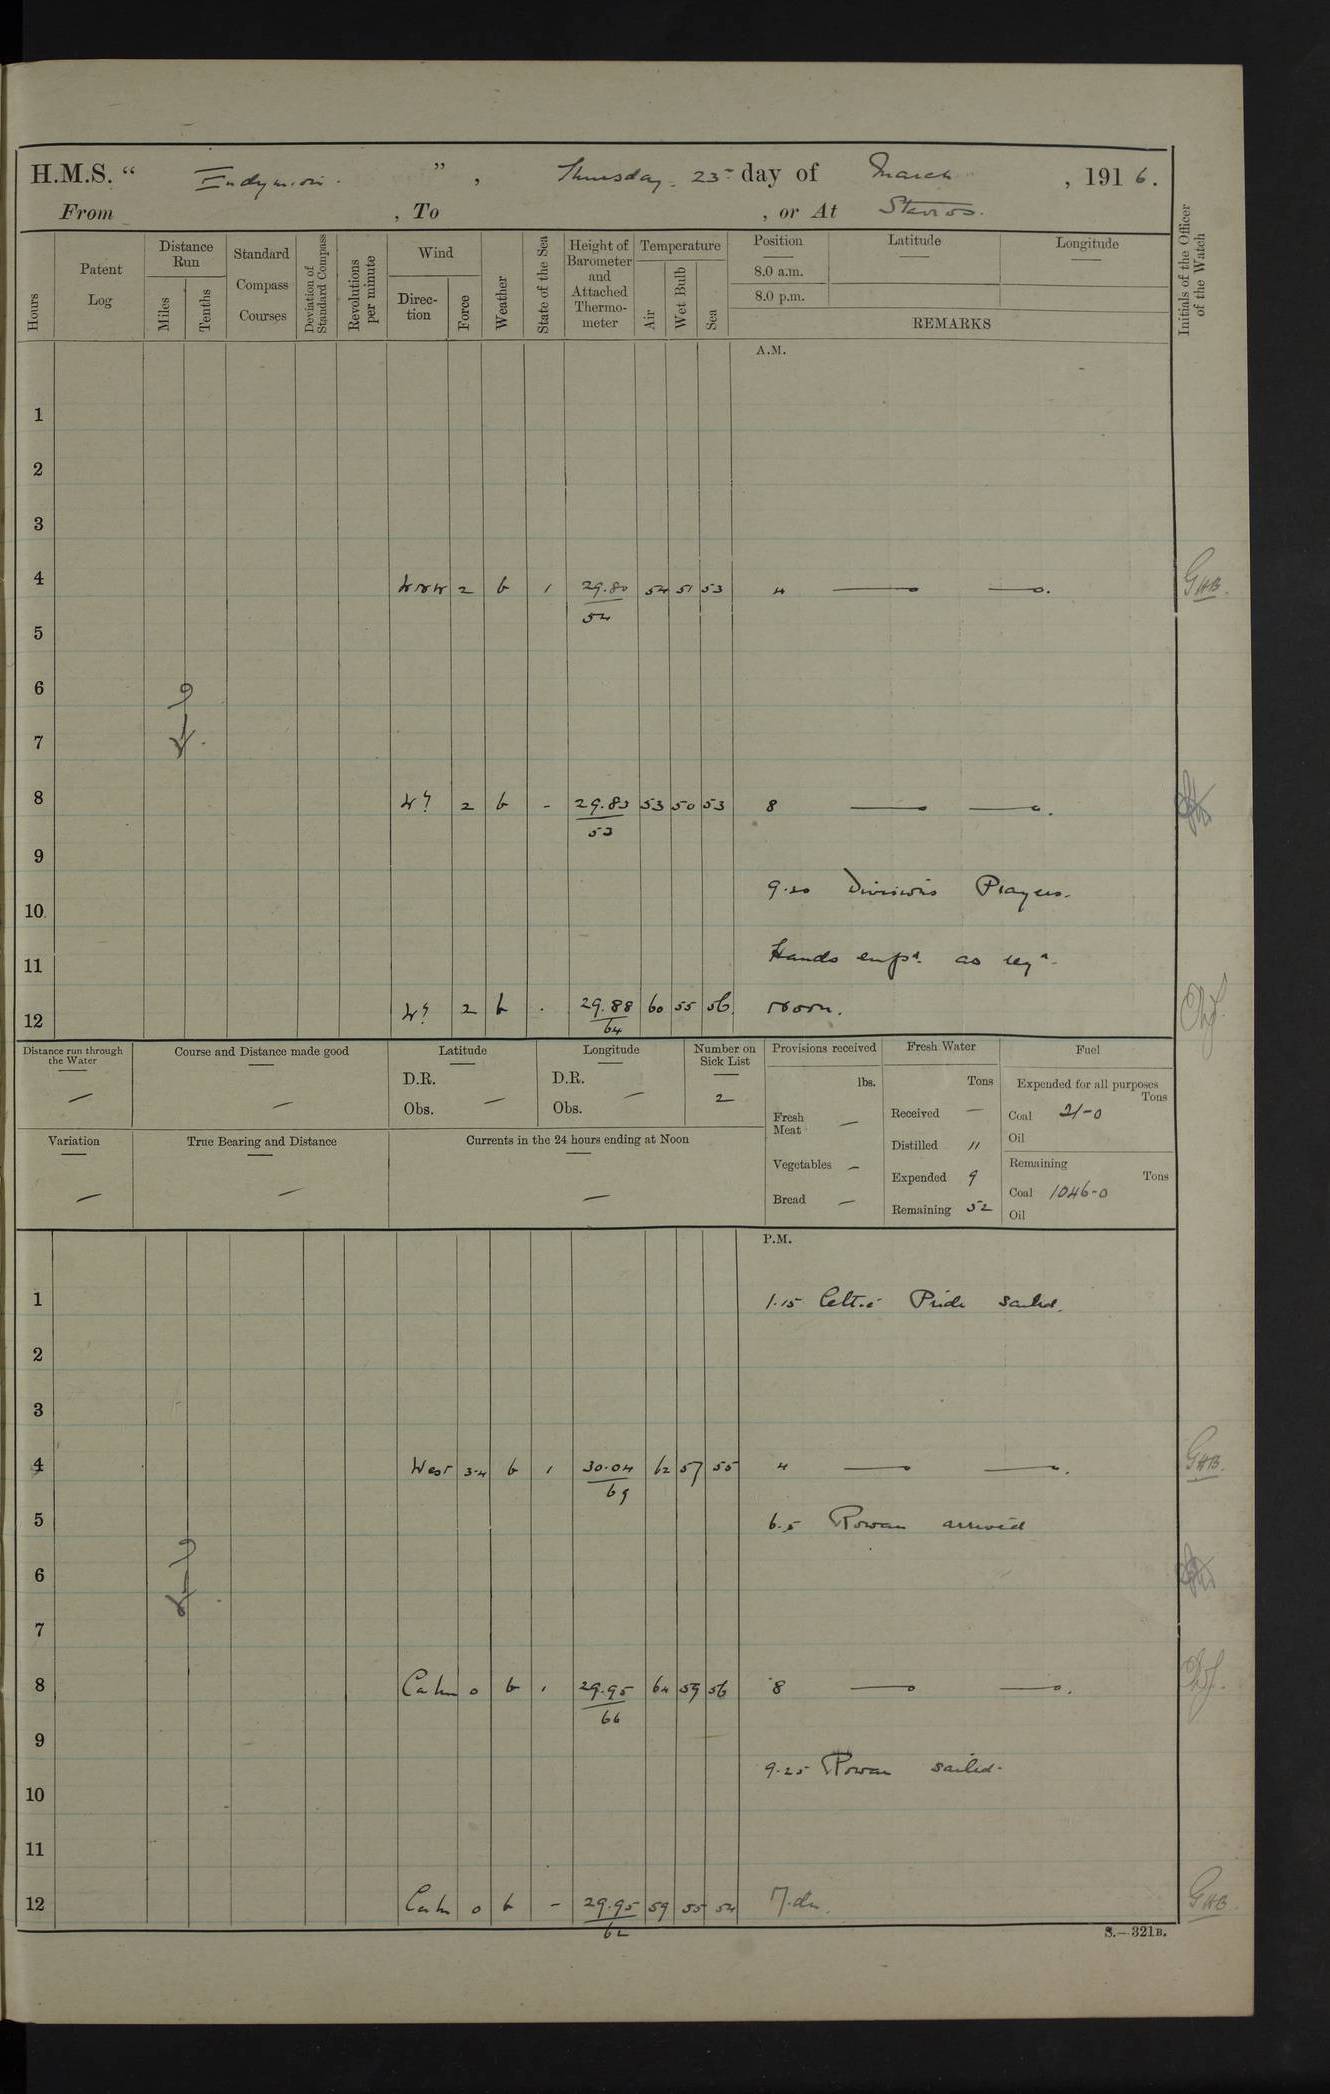 H.M.S. “ Endymion. ” , Thursday. 23 day of March , 1916.
From , To , or At Stavros.
Hours
Patent Log
Distance Run
Miles
Tenths
Standard Compass Courses
Deviation of Standard Compass
Revolutions per minute
Wind
Direc-tion
Force
Weather
State of the Sea
Height of Barometer and Attached Thermo-meter
Temperature
Air
Wet Bulb
Sea
Position
8.0 a.m.
8.0 p.m.
Latitude
Longitude
REMARKS
Initials of the Officer of the Watch
A.M.
1
2
3
4 WNW 2 b 1 29.80 54 51 53 4 GHB.
54
5
6
7
8 W 2 b - 29.83 53 50 53 8
53
9
9.20 Divisions Prayers.
10
11 Hands empd. as reqd.
12 W 2 b . 29.88 60 55 56 noon.
64
Distance run through the Water
—
Course and Distance made good
—
Latitude
D.R.
Obs. —
Longitude
D.R.
Obs. —
Number on Sick List
2
Provisions received
lbs.
Fresh Meat —
Vegetables —
Bread —
Fresh Water
Tons
Received —
Distilled "
Expended 9
Remaining 52
Fuel
Expended for all purposes
Tons
Coal 21-0
Oil
Remaining
Tons
Coal 1046-0
Oil
Variation
—
True Bearing and Distance
—
Currents in the 24 hours ending at Noon
—
P.M.
1 1.15 Celtic Pride sailed.
2
3
4 West 3-4 b 1 30.04 62 57 55 4 GHB.
69
5 6.5 Rowan arrived
6
7
8 Calm 0 b 1 29.95 64 59 56 8
66
9
9.25 Rowan sailed.
10
11
12 Calm 0 b - 29.95 59 55 54 GHB.
62
S.—321B.